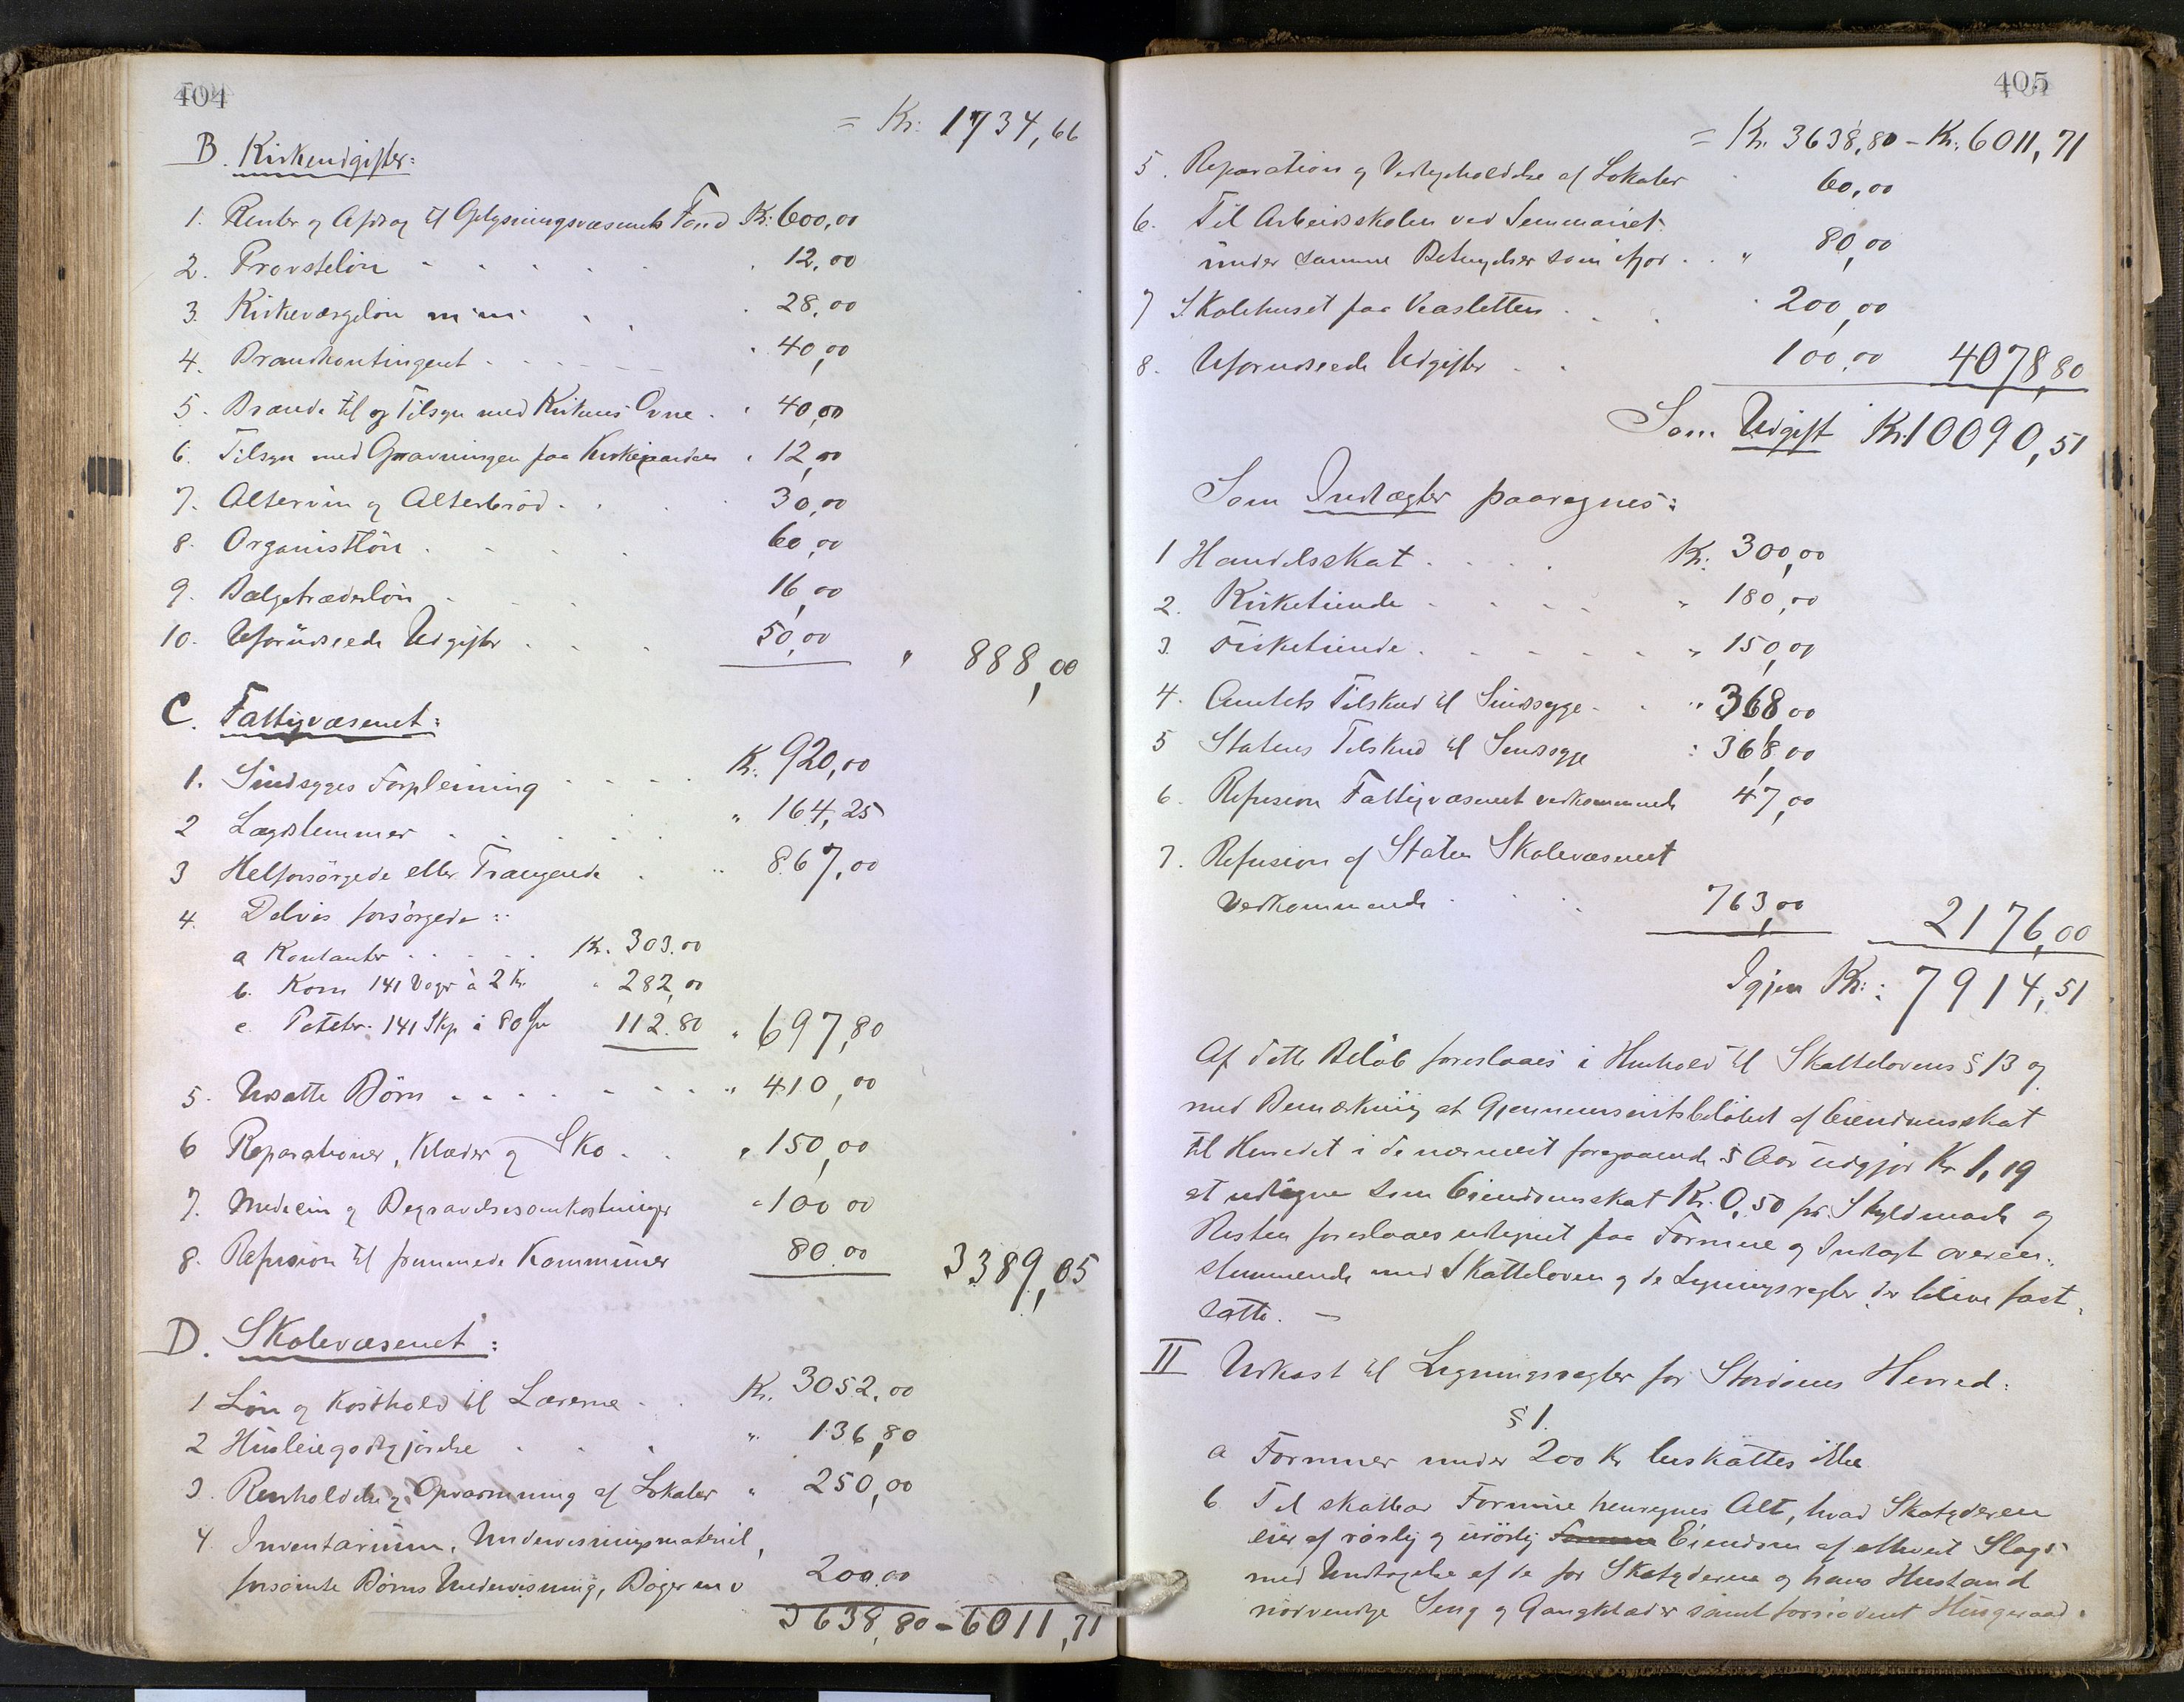 404
= Kr: 1734,66
B. Kirkeudgifter:
1. Renter og Afdrag til Oplysningsvæsenets Fond Kr: 600,00
2. Provsteløn 12,00
3. Kirkeværgeløn m. m. 28,00
4. Brandkontingent 40,00
5. Brænde til og Tilsyn med Kirkens Ovne 40,00
6. Tilsyn med Gravningen paa Kirkegaarden 12,00
7. Altervin og Alterbrød 30,00
8. Organistløn 60,00
9. Bælgetræderløn 16,00
10. Uforudseede Udgifter 50,00 " 888,00
C. Fattigvæsenet:
1. Sindsyges Forpleining Kr. 920,00
2 Lægdslemmer " 164,25
3 Helforsørgede eller Trængende " 867,00
4. Delvis forsørgede:
a Kontanter Kr. 303.00
b. Korn 141 Voger à 2 Kr. " 282,00
c. Poteter 141 Skp. à 80 Øre 112.80 " 697,80
5. Udsatte Børn " 410,00
6 Reparationer, Klæder og Sko " 150,00
7. Medecin og Begravelsesomkostninger " 100 00
8. Refusion til fremmede Kommuner 80.00 3389,05
D. Skolevæsenet:
1 Løn og Kosthold til Lærerne Kr. 3052.00
2 Husleiegodtgjørelse " 136,80
3. Renholdelse og Opvarmning af Lokaler " 250,00
4. Inventarium, Undervisningsmateriel,
forsømte Børns Undervisning, Bøger m v 200.00
3638,80 - 6011,71
405
= Kr. 3638,80 - Kr. 6011,71
5. Reparation og Vedligeholdelse af Lokaler 60,00
6. Til Arbeidsskolen ved Seminariet
under samme Betingelser som ifjor " 80,00
7 Skolehuset paa Vasletten 200,00
8. Uforudseede Udgifter 100.00 4078,80
Som Udgift Kr 10090,51
Som Indtægter paaregnes:
1 Handelsskat Kr. 300,00
2. Kirketiende " 180,00
3. Fisketiende " 150,00
4. Amtets Tilskud til Sindssyge " 368,00
5 Statens Tilskud til Sindssyge : 368,00
6. Refusion Fattigvæsenet vedkommende 47,00
7. Refusion af Staten Skolevæsenet
Vedkommende 763,00 2176,00
Igjen Kr: 7914,51
Af dette Beløb foreslaaes i Henhold til Skattelovens § 13 og
med Bemærkning at Gjennemsnitsbeløbet af Eiendomsskat
til Herredet i de nærmest foregaaende 5 Aar udgjør Kr. 1,19
at udligne som Eiendomsskat Kr. 0,50 pr. Skyldmark og
Resten foreslaaes udlignet paa Formue og Indtægt overens-
stemmende med Skatteloven og de Ligningsregler der blive fast-
satte. —
II Udkast til Ligningsregler for Stordøens Herred:
§ 1.
a Formuer under 200 Kr beskattes ikke
b Til skatbar Formue henregnes Alt, hvad Skatyderen
eier af rørlig og urørlig Formue Eiendom af ethvert Slags
med Undtagelse af de for Skatyderen og hans Husstand
nødvendige Seng og Gangklæder samt fornødent Husgeraad.